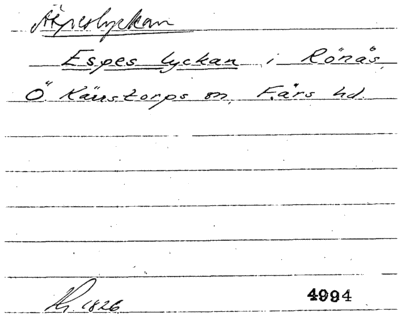 Äspeslyckan
Espes lyckan i Rönås,
Ö Kärstorps sn. Färs hd.
1826 4994